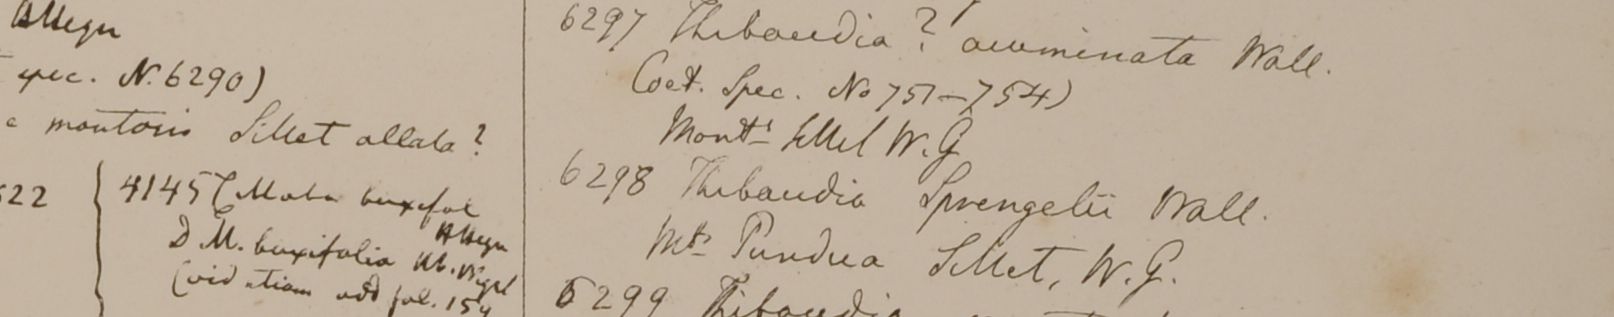 spec. N. 6290)
e montosis Sillet allata?
622
4145 (Maba buxifol
D M. buxifolia Hb. Wight
(vid etiam add fol. 154
6297 Thibaudia? acuminata Wall.
(cet. Spec. No 751-754)
Monts Sillet W. G
6298 Thibaudia Sprengelii Wall.
Mts Pundua Sillet, W. G.
6299 Thibaudia